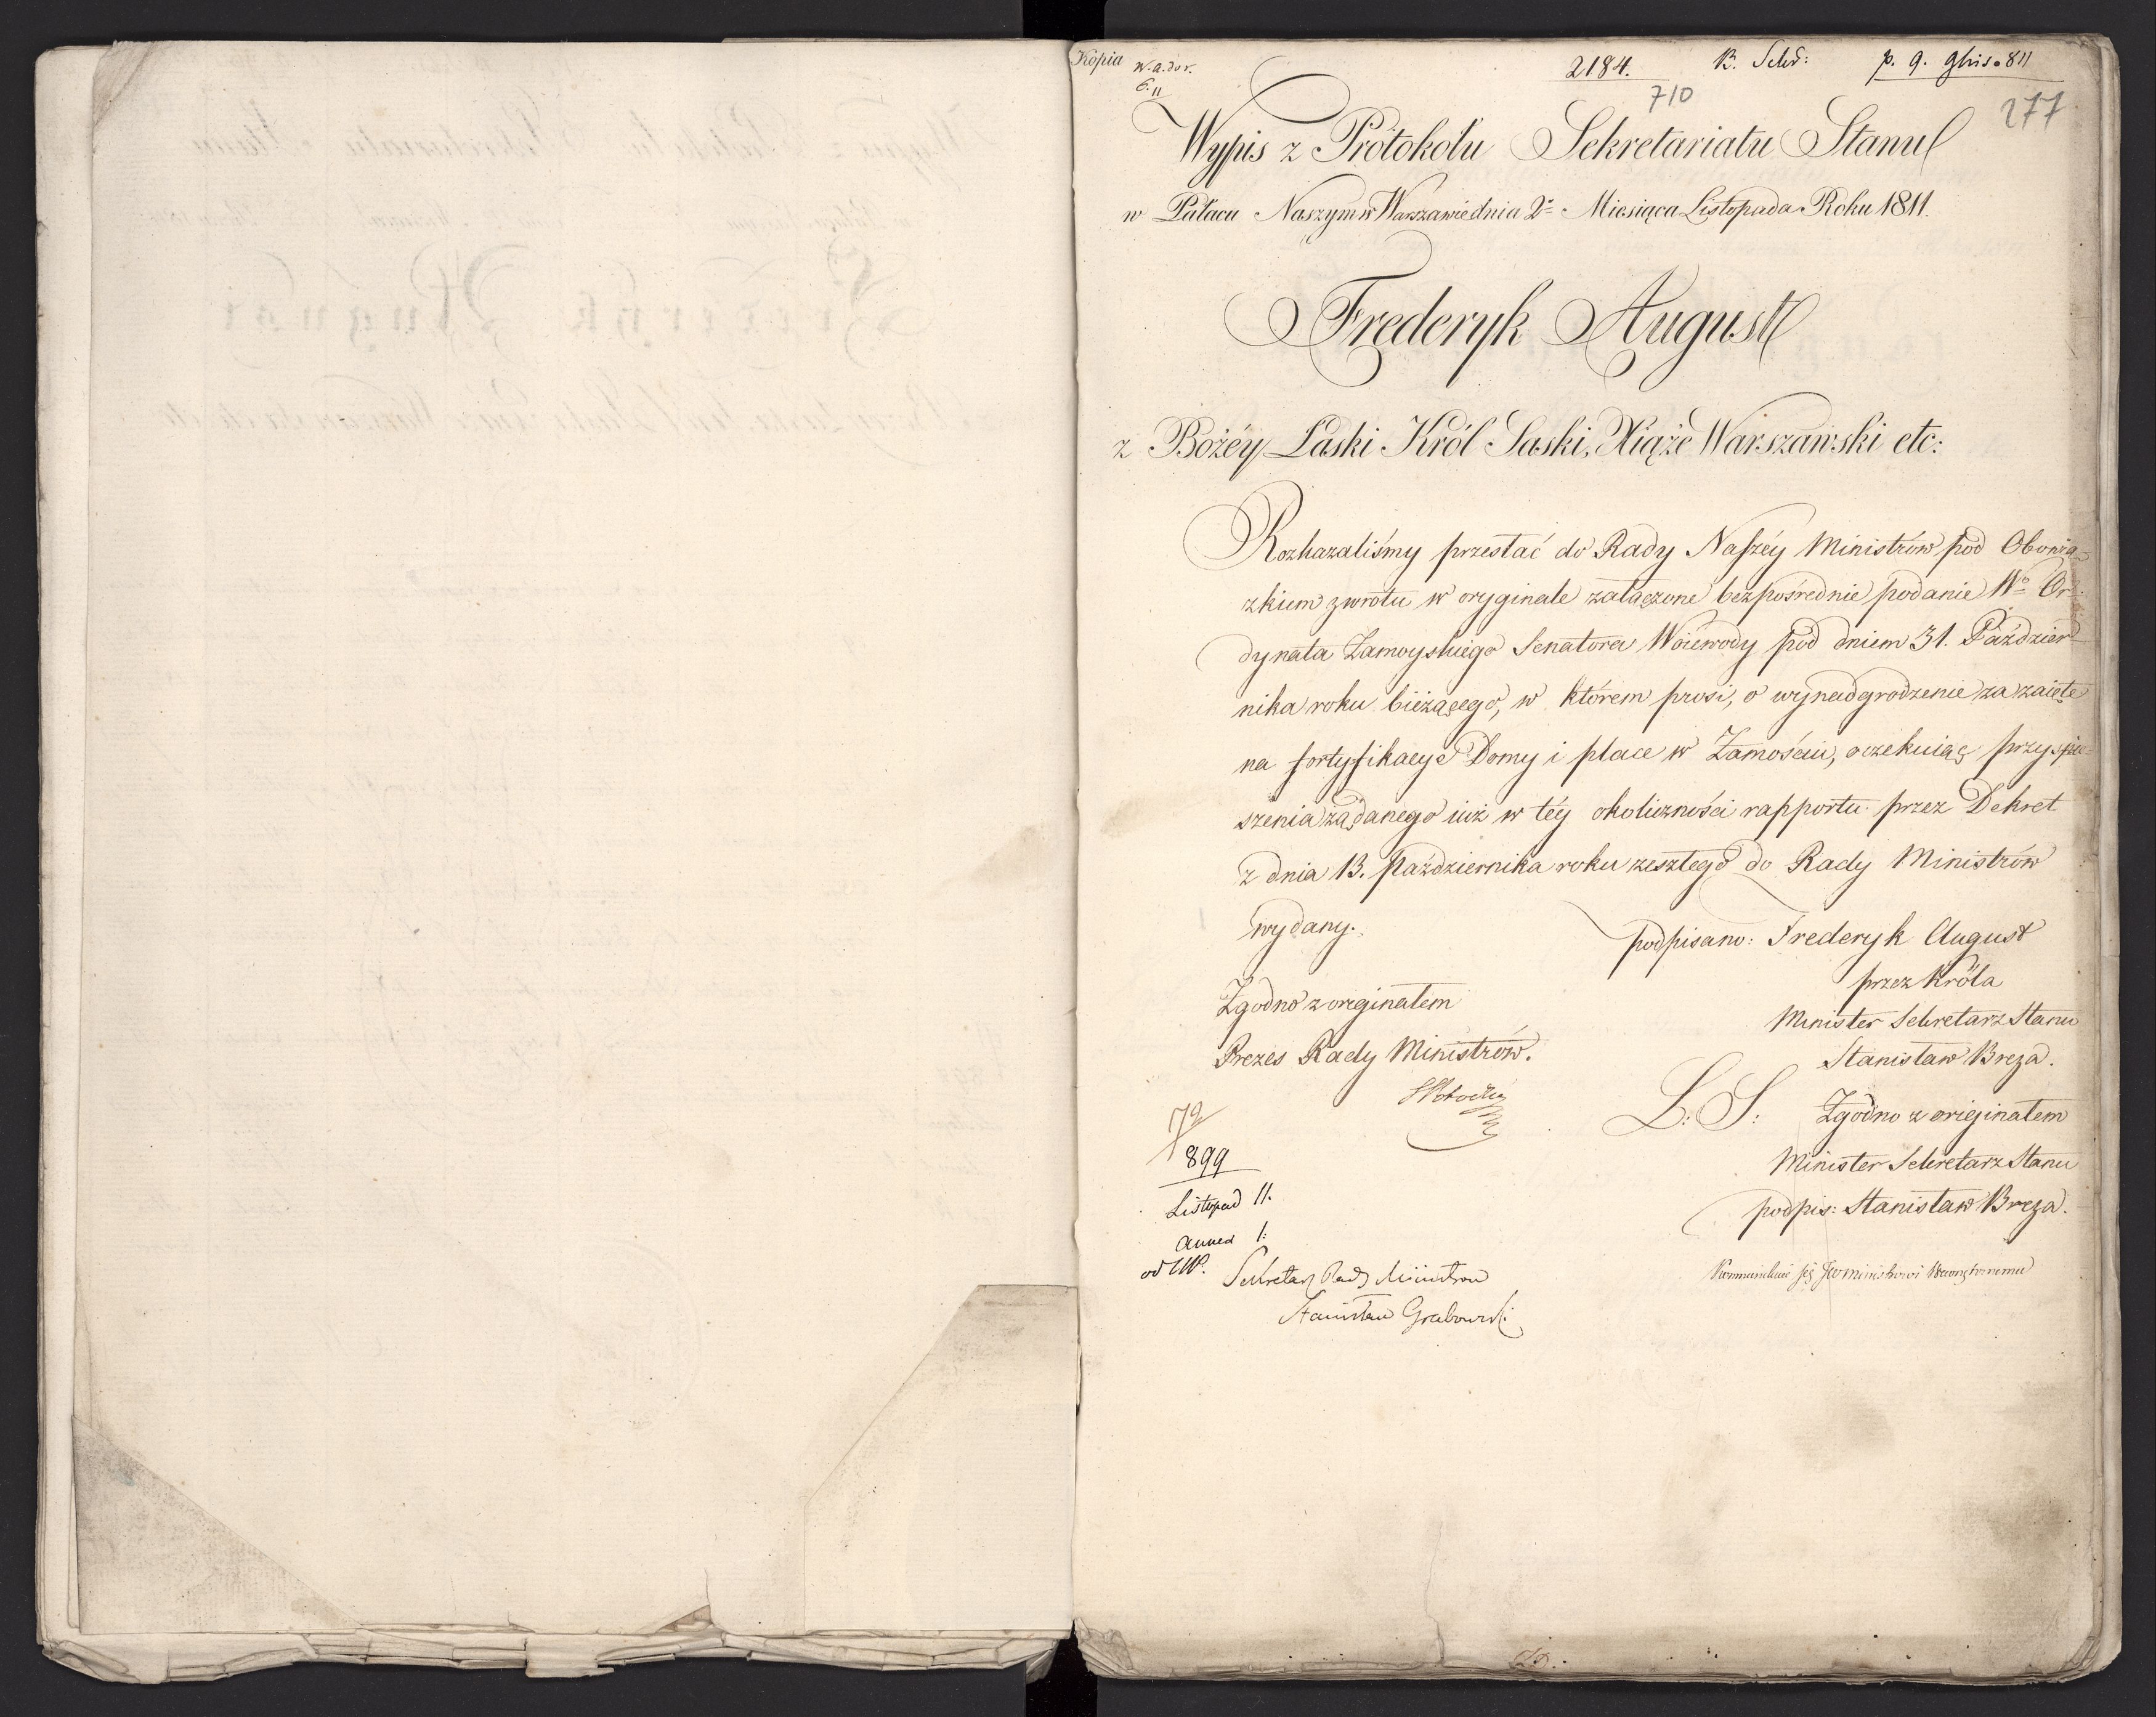 Kopia
2184.
p. 9. 9bris. 811
710
277
Wypis z Protokołu Sekretariatu Stanu
w Pałacu Naszym w Warszawie dnia 2º Miesiąca Listopada Roku 1811.
Frederyk August
z Bożéy Łaski Król Saski, Xiąże Warszawski etc:
Rozkazaliśmy przesłać do Rady Naszéy Ministrów pod Obowią-
zkiem zwrotu w oryginale załączone bezpośrednie podanie Wº Or-
dynata Zamoyskiego Senatora Woiewody pod dniem 31. Paździer-
nika roku bieżącego, w którem prosi, o wynadgrodzenie za zaięte
na fortyfikacye Domy i place w Zamościu, oczekuiąc przyspie-
szenia żądanego iuż w téy okoliczności rapportu przez Dekret
z dnia 13. Października roku zeszłego do Rady Ministrów
wydany.
podpisano: Frederyk August
przez Króla
Minister Sekretarz Stanu
Stanisław Breza.
Zgodno z oreginałem
Prezes Rady Ministrów.
L: S: Zgodno z orieginałem
Minister Sekretarz Stanu
podpis: Stanisław Breza.
899
Listopad 11.
Annex 1:
od
Sekretarz Rady Ministrów
Stanisław Grabowski